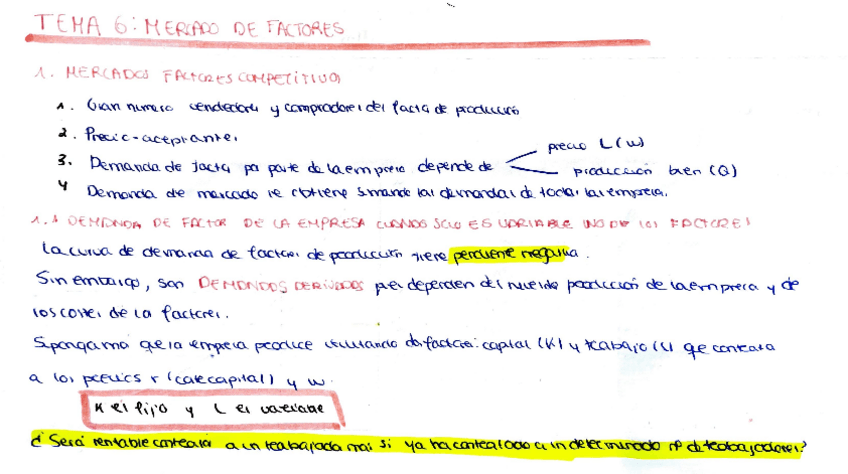 TEMA 6: MERCADO DE FACTORES
1. MERCADOS FACTORES COMPETITIVOS
1. Gran número vendedores y compradores del factor de producción
2. Precio-aceptantes
3. Demanda de factor por parte de la empresa depende de
precio L (w)
producción bien (Q)
4 Demanda de mercado se obtiene sumando las demandas de todas las empresas.
1.1 DEMANDA DE FACTOR DE LA EMPRESA CUANDO SOLO ES VARIABLE UNO DE LOS FACTORES
La curva de demanda de factores de producción tiene pendiente negativa.
Sin embargo, son DEMANDAS DERIVADAS pues dependen del nivel de producción de la empresa y de
los costes de los factores.
Supongamos que la empresa produce utilizando dos factores: capital (K) y trabajo (L) que contrata
a los precios r (coste capital) y w.
K es fijo y L es variable
¿Será rentable contratar a un trabajador más si ya ha contratado a un determinado nº de trabajadores?